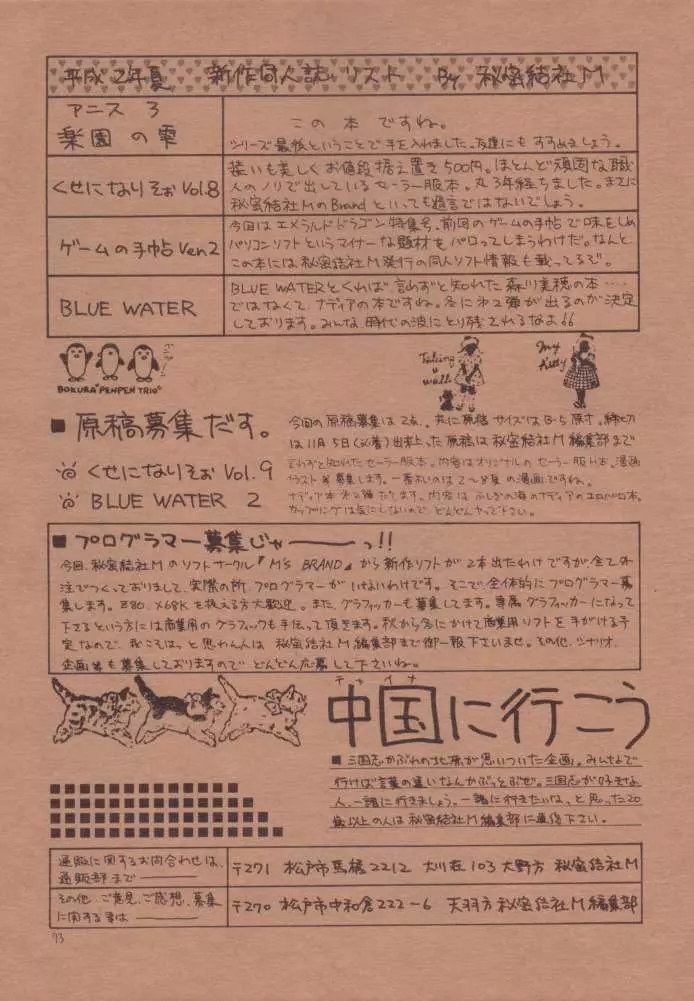 平成2年夏 新作同人誌リスト By 秘密結社M
アニス 3
楽園の雫
この本ですね。
シリーズ最後ということで手を入れました。友達にもすすめましょう。
くせになりそぉ Vol.8
装いも美しくお値段据え置き500円。ほとんど頑固な職
人のノリで出しているセーラー服本。丸3年経ちました。まさに
秘密結社MのBrandといっても過言ではないでしょう。
ゲームの手帖 Ver.2
今回はエメラルドドラゴン特集号。前回のゲームの手帖で味をしめ
パソコンソフトというマイナーな題材をパロってしまうわけだ。なんと
この本には秘密結社M発行の同人ソフト情報も載ってるぞ。
BLUE WATER
BLUE WATERとくれば言わずと知れた森川美穂の本‥‥
ではなくて、ナディアの本ですね。冬に第2弾が出るのが決定
しております。みんな時代の波にとり残されるなよ
BOKURA PENPEN TRIO
Taking a walk
My Kitty
■原稿募集だす。
くせになりそぉ Vol.9
BLUE WATER 2
今回の原稿募集は2点。共に原稿サイズはB-5原寸。締切
は11月5日(必着)出来上った原稿は秘密結社M編集部まで
言わずと知れたセーラー服本。内容はオリジナルのセーラー服H本。漫画
イラスト等募集します。一番おいのは2〜8頁の漫画ですね。
ナディア本第2弾だします。内容はふしぎの海のナディアのエロパロ本。
カップリングは気にしないのでどんどんやって下さい。
■プログラマー募集じゃ――っ!!
今回、秘密結社Mのソフトサークル『M's BRAND』から新作ソフトが2本出たわけですが、全て外
注でつくっておりまして、実際の所、プログラマーがいないわけです。そこで、全体的にプログラマー募
集します。Z80、X68Kを扱える方大歓迎。また、グラフィッカーも募集してます。専属グラフィッカーになって
下さるという方には商業用のグラフィックも手伝って頂きます。秋から冬にかけて商業用ソフトを手がける予
定なので、我こそはっと思わん人は秘密結社M編集部まで御一報下さいませ。その他、シナリオ、
企画等も募集しておりますのでどんどん応募して下さいね。
チャイナ
中国に行こう
■三国志かぶれの地原が思いついた企画。みんなで
行けば言葉の違いなんかぶっとぶぜ。三国志が好きな
人、一諸に行きましょう。一諸に行きたいな、と思った20
歳以上の人は秘密結社M編集部に返信下さい。
通販に関するお問合わせは、
通販部まで――
〒271 松戸市馬橋2212 大川荘103 大野方 秘密結社M
その他、ご意見、ご感想、募集
に関する事は――
〒270 松戸市中和倉222-6 天羽方秘密結社M編集部
73